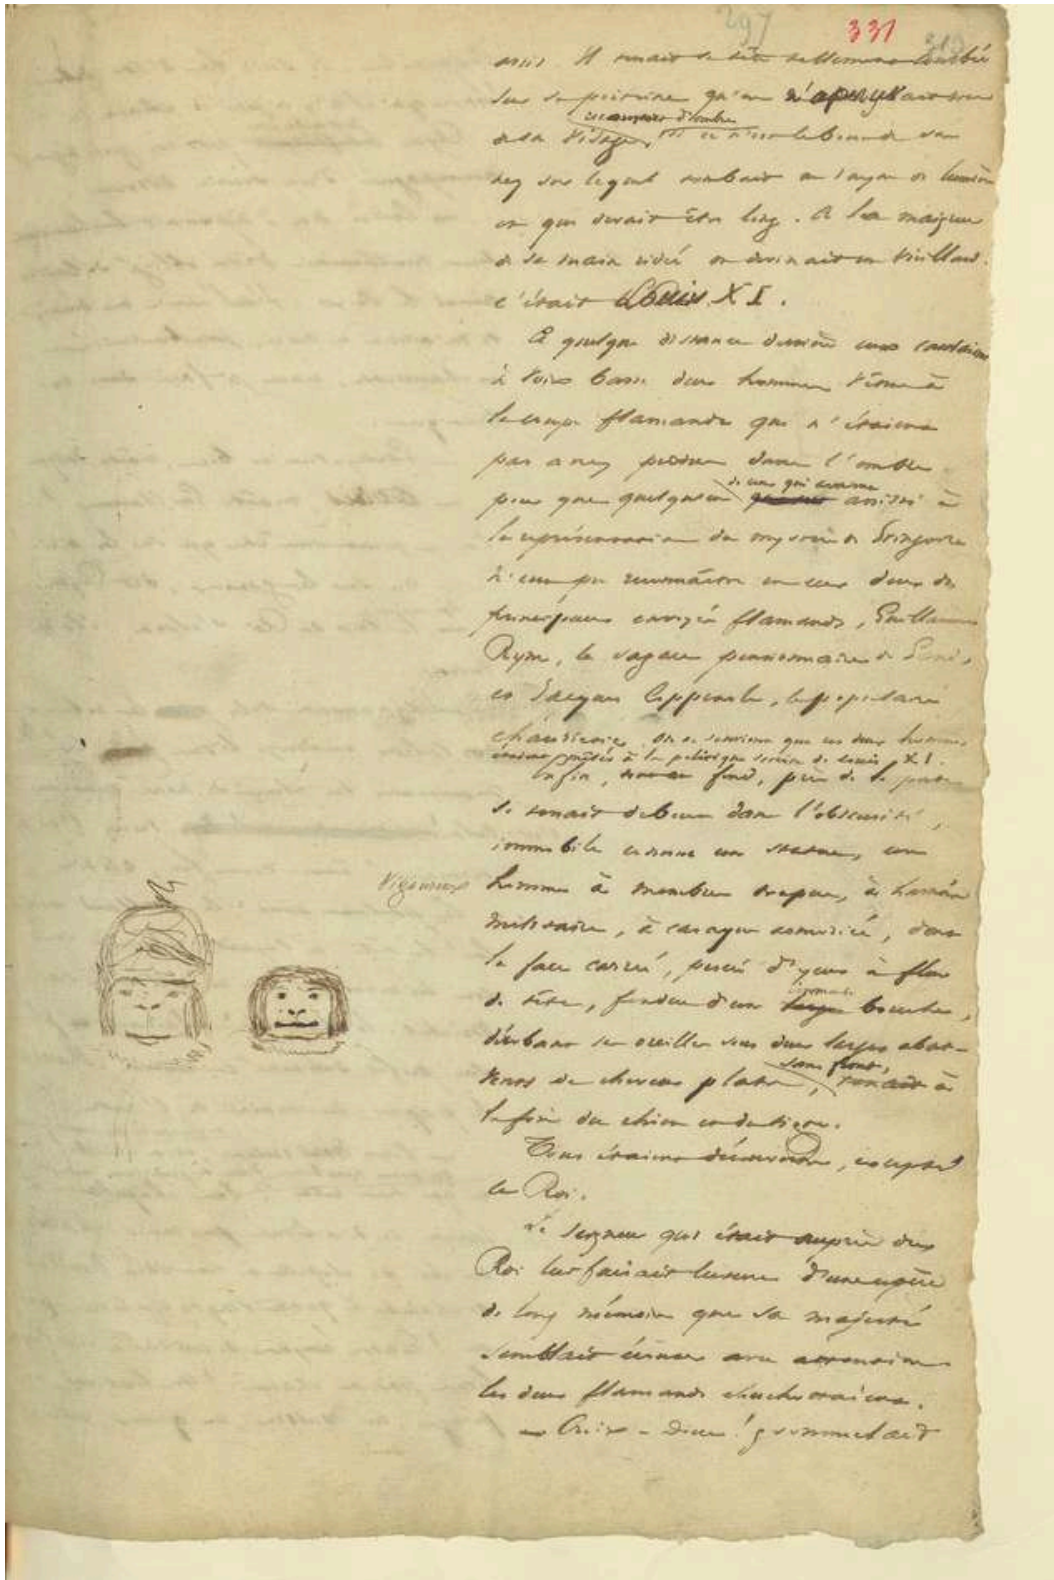 297 331 313
assis. Il tenait sa tête tellement courbée
sur sa poitrine qu'on n'apercevait rien
recouvert d'ombre
de son visage, si ce n'est le bout de son
nez sur lequel tombait un rayon de lumière
et qui devait être long. A la maigreur
de sa main ridée on devinait un vieillard.
c'était Louis XI.
A quelque distance derrière eux causaient
à voix basse deux hommes vêtus à
la coupe flamande qui n'étaient
pas assez perdus dans l'ombre
de ceux qui avaient
pour que quelqu'un assisté à
la représentation du mystère de Gringoire
n'eût pu reconnaître en eux deux des
principaux envoyés flamands, Guillaume
Rym, le sagace pensionnaire de Gand,
et Jacques Coppenole, le populaire
chaussetier. On se souvient que ces deux hommes
étaient mêlés à la politique secrète de Louis XI.
Enfin, tout au fond, près de la porte
se tenait debout dans l'obscurité,
immobile comme une statue, un
vigoureux
homme à membres trapus, à harnois
militaire, à casaque armoriée, dont
la face carrée, percée d'yeux à fleur
immense
de tête, fendue d'une large bouche,
dérobant ses oreilles sous deux larges abat-
sans front,
vents de cheveux plats, tenait à
la fois du chien et du tigre.
Tous étaient découverts, excepté
le Roi.
Le seigneur qui était auprès du
Roi lui faisait lecture d'une espèce
de long mémoire que sa majesté
semblait écouter avec attention
les deux flamands chuchotaient.
— Croix-Dieu ! grommelait